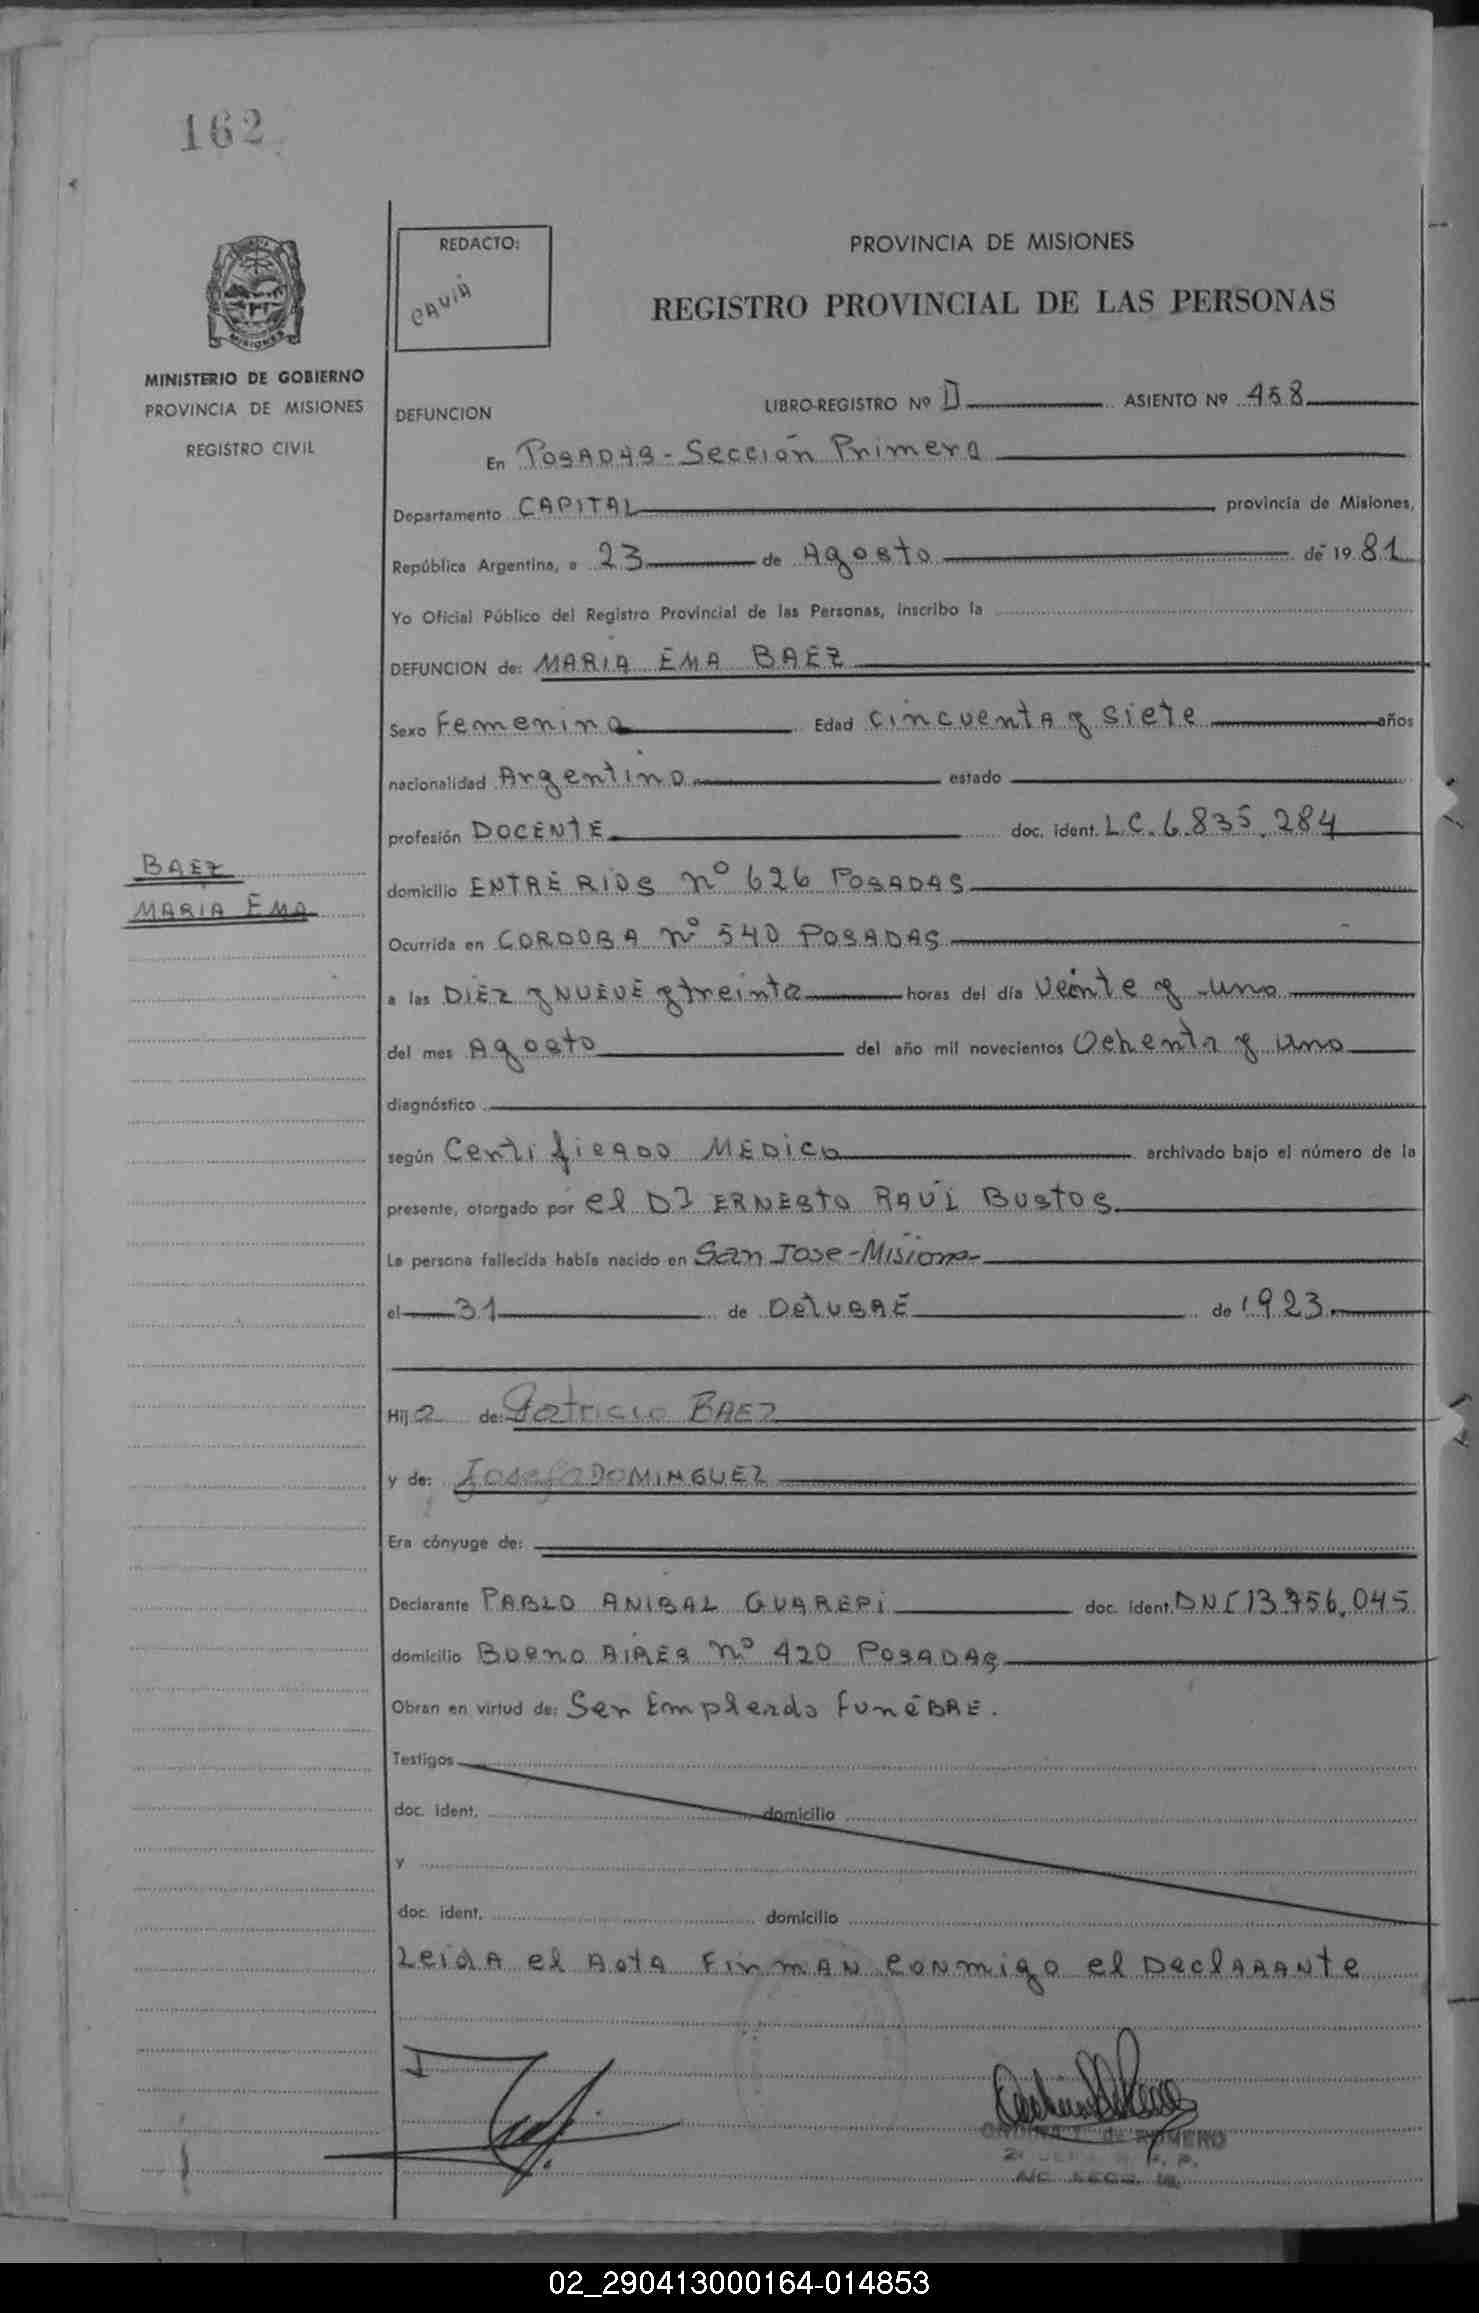 162
REDACTO:
CAVIA
PROVINCIA DE MISIONES
REGISTRO PROVINCIAL DE LAS PERSONAS
MISIONES
MINISTERIO DE GOBIERNO
PROVINCIA DE MISIONES
REGISTRO CIVIL
DEFUNCION LIBRO-REGISTRO Nº D ASIENTO Nº 458
En POSADAS - Sección Primera
Departamento CAPITAL provincia de Misiones,
República Argentina, a 23 de Agosto de 19 81
Yo Oficial Público del Registro Provincial de las Personas, inscribo la
DEFUNCION de: MARIA EMA BAEZ
Sexo Femenino Edad cincuenta y siete años
nacionalidad Argentina estado
profesión DOCENTE doc. ident. L.C. 6.835.284
BAEZ
MARIA EMA
domicilio ENTRE RIOS nº 626 POSADAS
Ocurrida en CORDOBA nº 540 POSADAS
a las DIEZ y NUEVE y treinta horas del día veinte y uno
del mes Agosto del año mil novecientos Ochenta y uno
diagnóstico
según Certificado MEDICO archivado bajo el número de la
presente, otorgado por el Dr ERNESTO RAUL BUSTOS
La persona fallecida había nacido en San Jose - Misiones
el 31 de OCTUBRE de 1923
Hija de: Patricio BAEZ
y de: Josefa DOMINGUEZ
Era cónyuge de:
Declarante PABLO ANIBAL GUAREPI doc. ident. DNI 13.756.045
domicilio Bueno AIRES nº 420 POSADAS
Obran en virtud de: Ser Empleado FUNÉBRE.
Testigos
doc. ident. domicilio
y
doc. ident. domicilio
Leida el Acta Firman conmigo el Declarante
de ROMERO
02_290413000164-014853